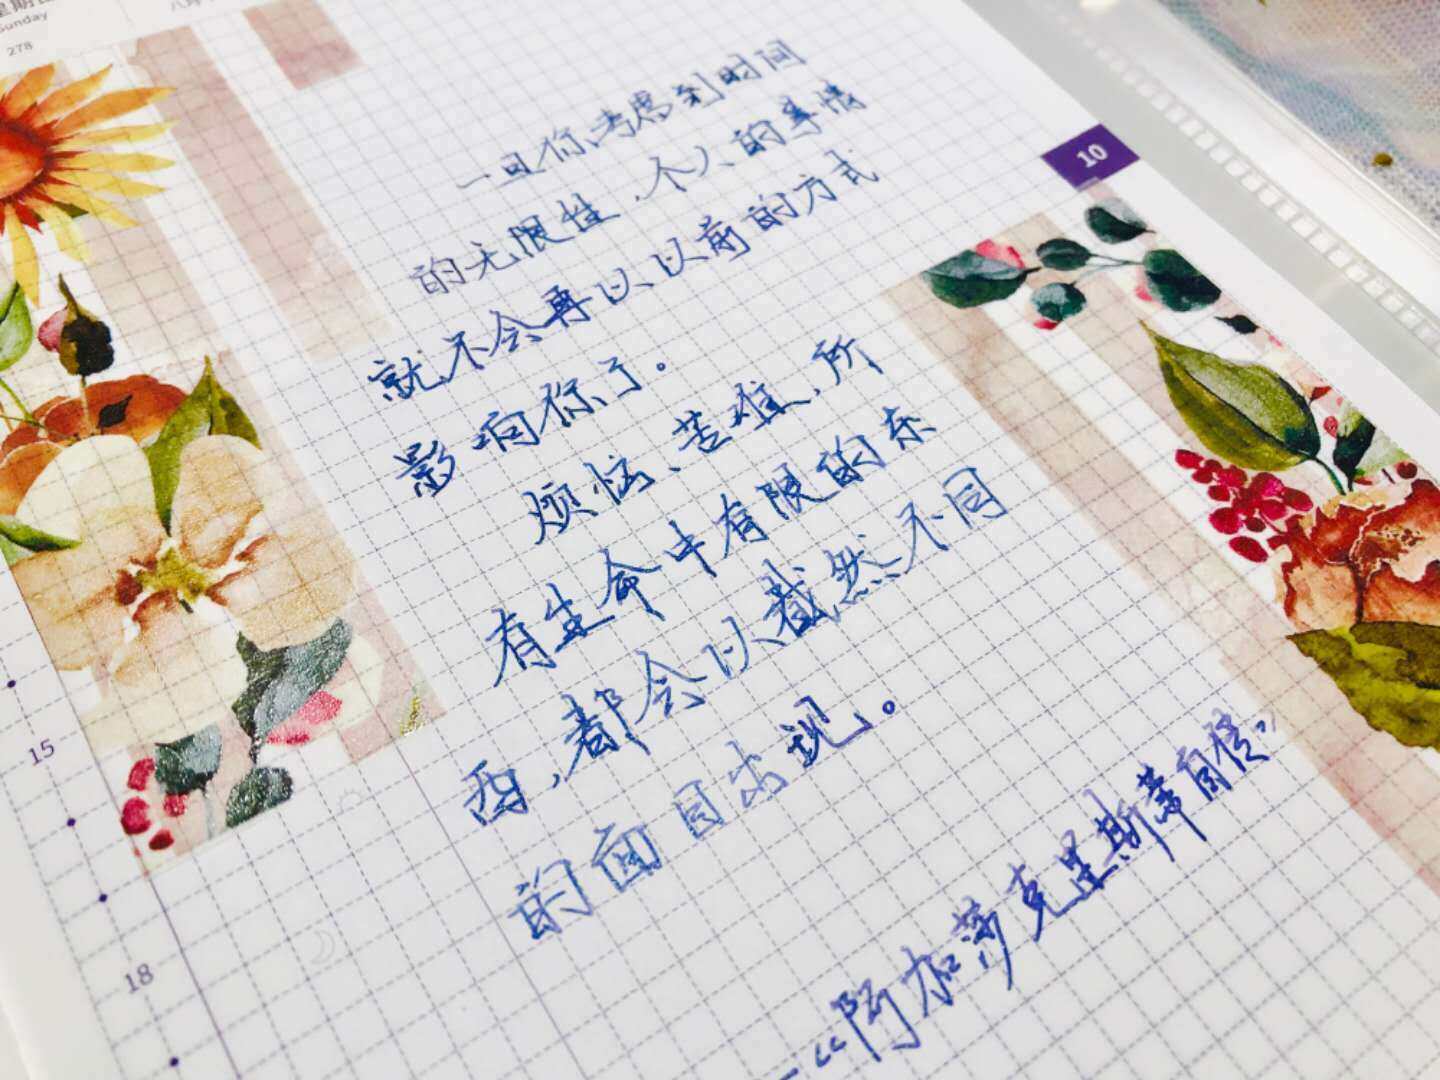 Sunday
278
10
一旦你考虑到时间
的无限性，个人的事情
就不会再以以前的方式
影响你了。
烦恼、苦难、所
有生命中有限的东
西，都会以截然不同
的面目出现。
—“阿加莎克里斯蒂自传”
15
18